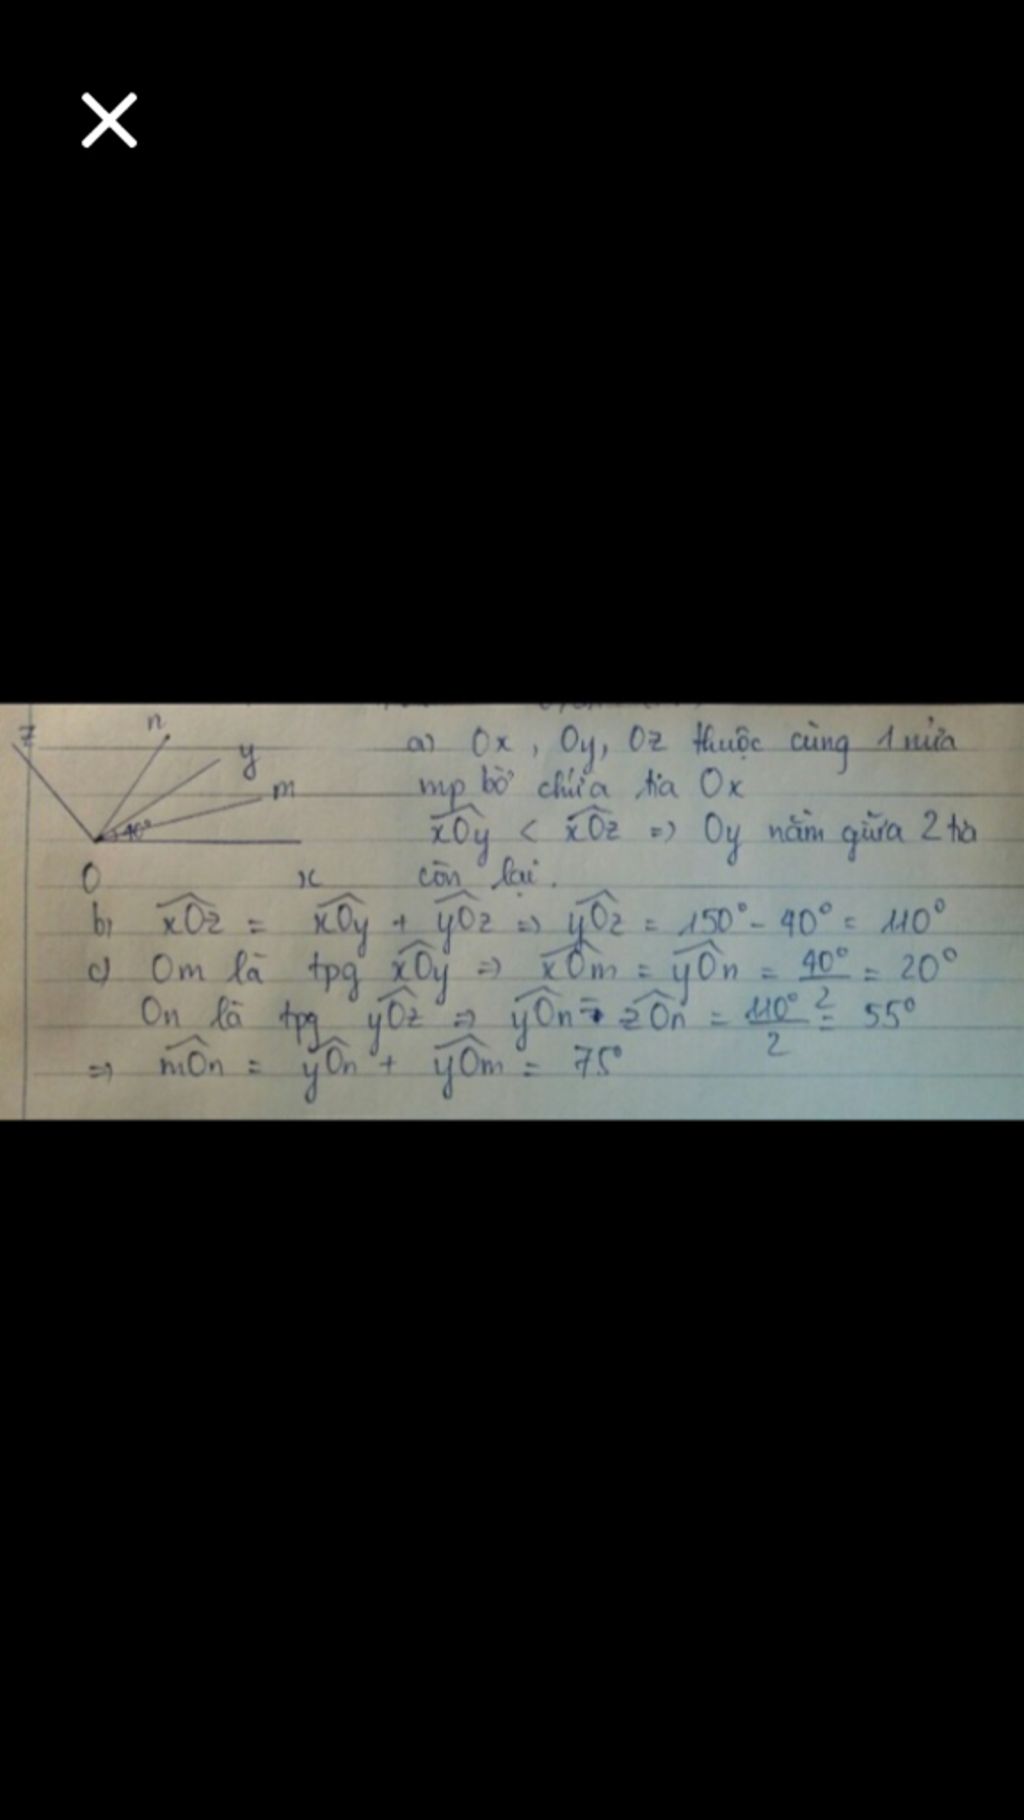 z
n
y
m
40°
O
x
a) Ox, Oy, Oz thuộc cùng 1 nửa
mp bờ chứa tia Ox
xOy < xOz => Oy nằm giữa 2 tia
còn lại.
b) xOz = xOy + yOz => yOz = 150° - 40° = 110°
c) Om là tpg xOy => xOm = yOn = 40°/2 = 20°
On là tpg yOz => yOn = zOn = 110°/2 = 55°
=> mOn = yOn + yOm = 75°